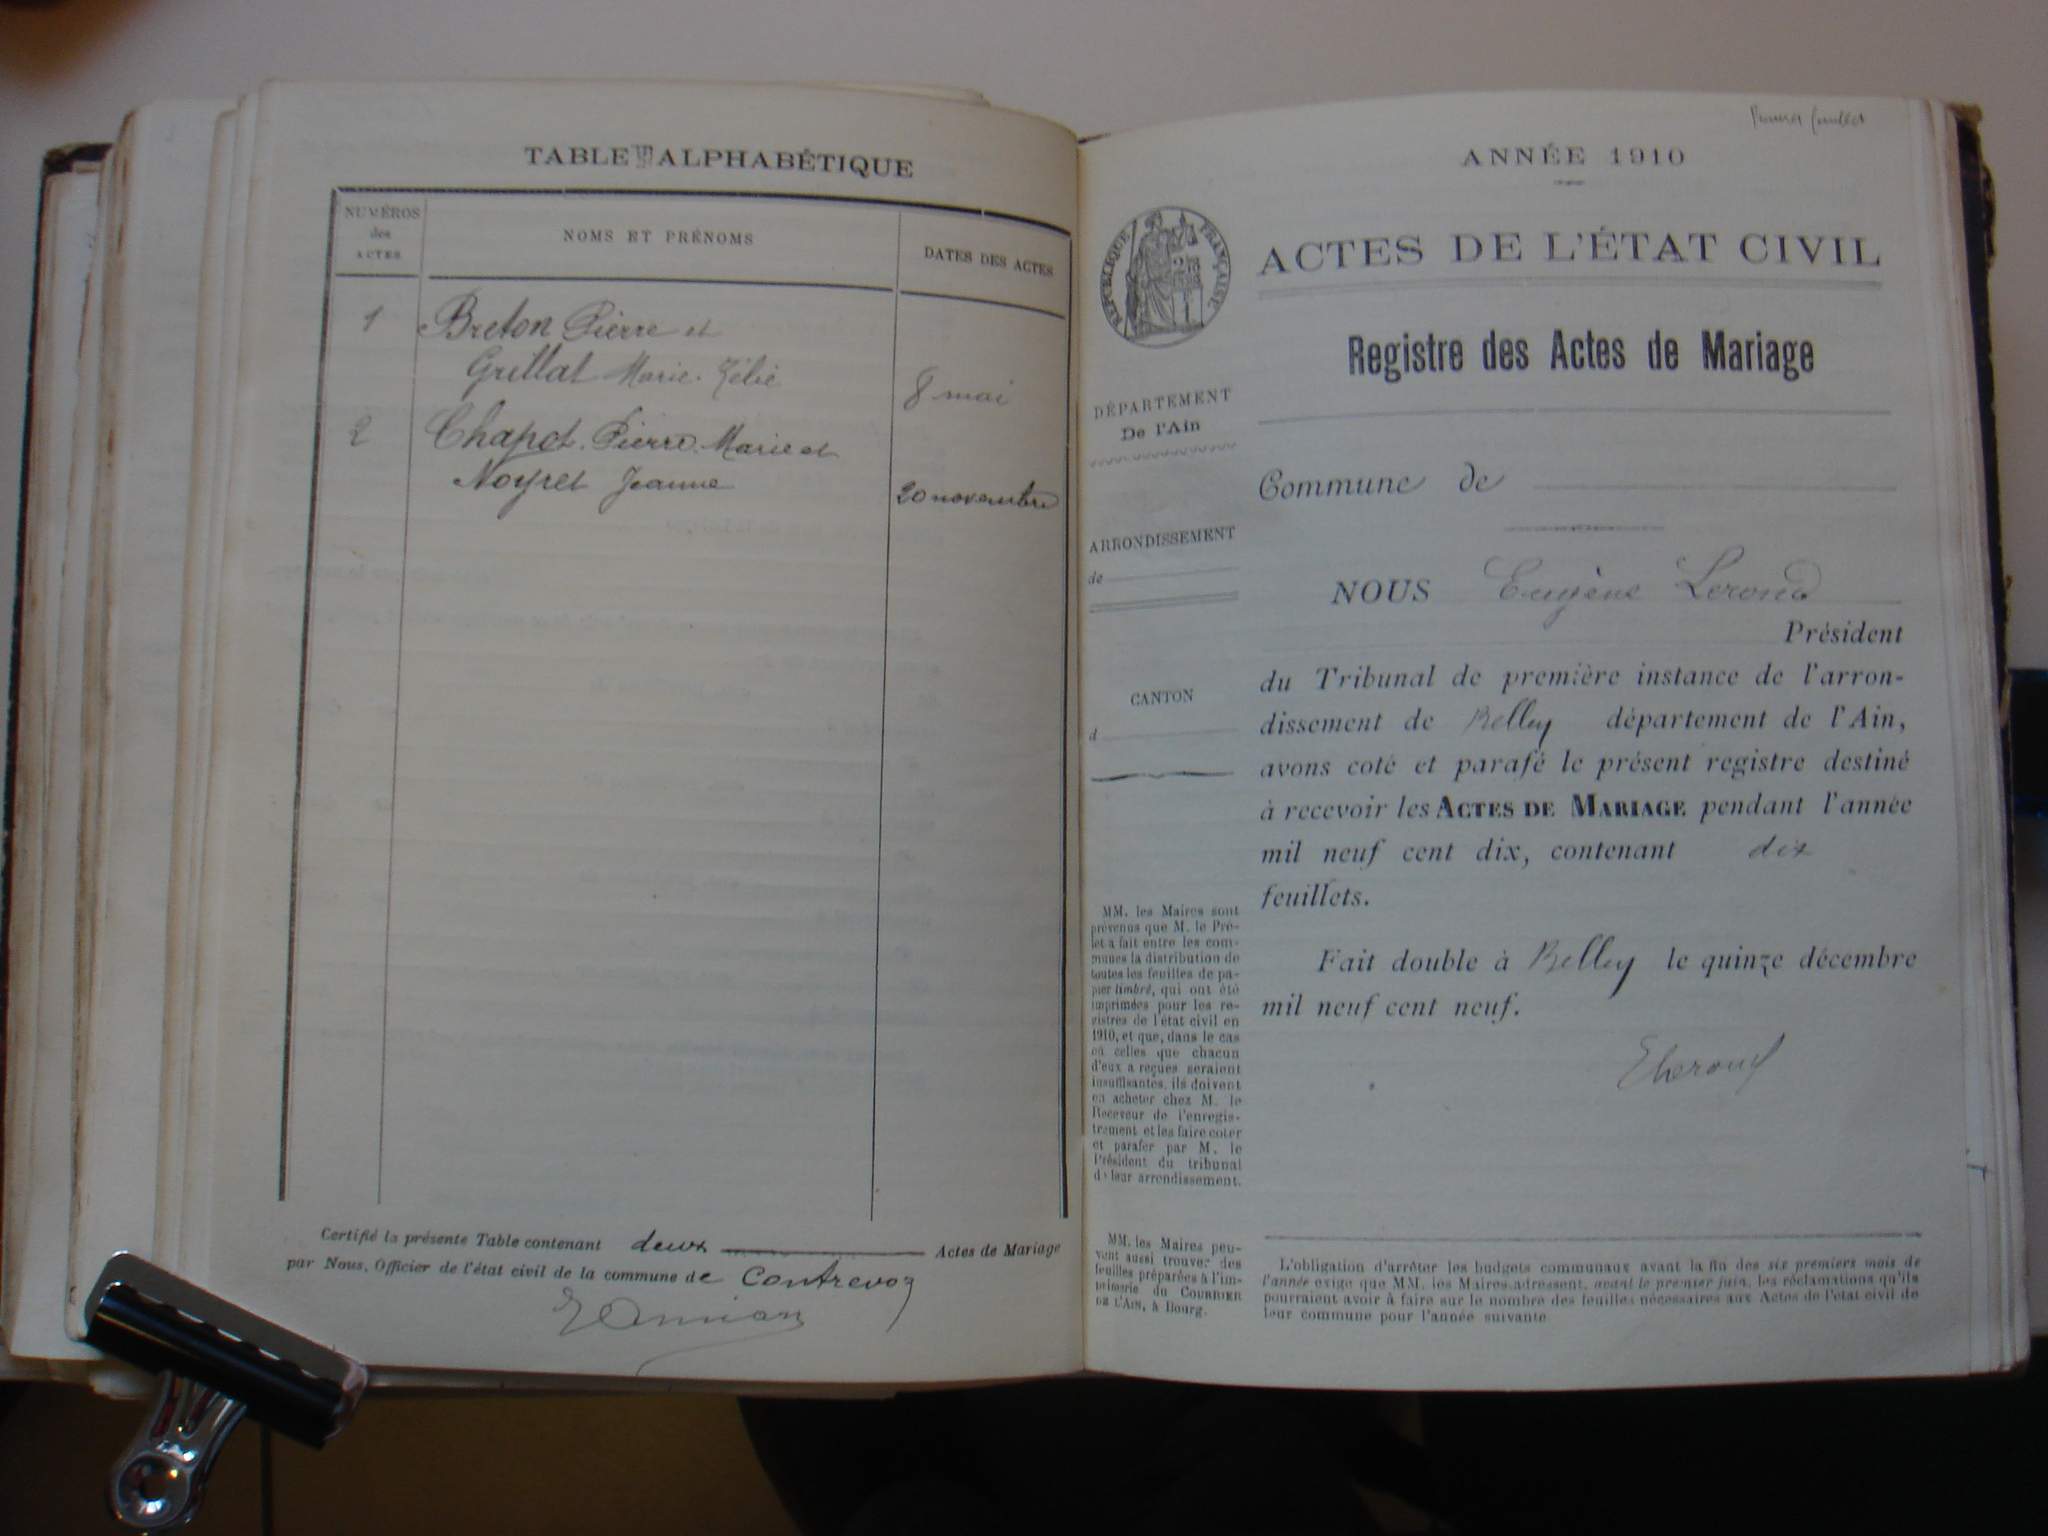 TABLE ALPHABÉTIQUE
NUMÉROS
des
ACTES
NOMS ET PRÉNOMS
DATES DES ACTES
1
Breton Pierre et
Grillat Marie-Zélie
8 mai
2
Chapot Pierre Marie et
Noyret Jeanne
20 novembre
Certifié la présente Table contenant deux Actes de Mariage
par Nous, Officier de l'état civil de la commune de Contrevoz
ANNÉE 1910
RÉPUBLIQUE FRANÇAISE
ACTES DE L'ÉTAT CIVIL
Registre des Actes de Mariage
DÉPARTEMENT
De l'Ain
Commune de
ARRONDISSEMENT
de
CANTON
d
NOUS Eugène Lerond
Président
du Tribunal de première instance de l'arron-
dissement de Belley département de l'Ain,
avons coté et parafé le présent registre destiné
à recevoir les ACTES DE MARIAGE pendant l'année
mil neuf cent dix, contenant dix
feuillets.
Fait double à Belley le quinze décembre
mil neuf cent neuf.
ELerond
MM. les Maires sont
prévenus que M. le Pré-
fet a fait entre les com-
munes la distribution de
toutes les feuilles de pa-
pier timbré, qui ont été
imprimées pour les re-
gistres de l'état civil en
1910, et que, dans le cas
où celles que chacun
d'eux a reçues seraient
insuffisantes, ils doivent
en acheter chez M. le
Receveur de l'enregis-
trement et les faire coter
et parafer par M. le
Président du tribunal
de leur arrondissement.
MM. les Maires peu-
vent aussi trouver des
feuilles préparées à l'im-
primerie du COURRIER
DE L'AIN, à Bourg.
L'obligation d'arrêter les budgets communaux avant la fin des six premiers mois de
l'année exige que MM. les Maires adressent, avant le premier juin, les réclamations qu'ils
pourraient avoir à faire sur le nombre des feuilles nécessaires aux Actes de l'état civil de
leur commune pour l'année suivante